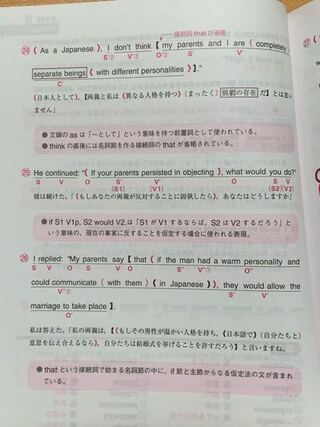 接続詞 that が省略
㉔ ( As a Japanese ), I don't think 【 my parents and I are ( completely )
S V O S'② V'② O'② S'' V''
separate beings 《 with different personalities 》 】."
C''
(日本人として)、【両親と私は《異なる人格を持つ》(まったく) 別個の存在 だ】とは思い
ません」
● 文頭の as は「～として」という意味を持つ前置詞として使われている。
● think の直後には名詞節を作る接続詞の that が省略されている。
㉕ He continued: "( If your parents persisted in objecting ), what would you do?"
S V O S' V' O' S V
(S1) (V1) (S2)(V2)
彼は続けた。「(もしあなたの両親が反対することに固執したら)、あなたはどうしますか」
● if S1 V1p, S2 would V2.は「S1 が V1 するならば、S2 は V2 するだろう」と
いう意味の、現在の事実に反することを仮定する場合に使われる表現。
㉖ I replied: "My parents say 【 that ( if the man had a warm personality and
S V O S' V' O' S'' V''① O''①
could communicate ( with them ) ( in Japanese )), they would allow the
V''② S' V'
marriage to take place 】.
O' C'
私は答えた。「私の両親は、【(もしその男性が温かい人格を持ち、(日本語で)(自分たちと)
意思を伝え合えるなら)、自分たちは結婚式を挙げることを許すだろう】と言いますね。
● that という接続詞で始まる名詞節の中に、if 節と主節からなる仮定法の文が含まれ
ている。